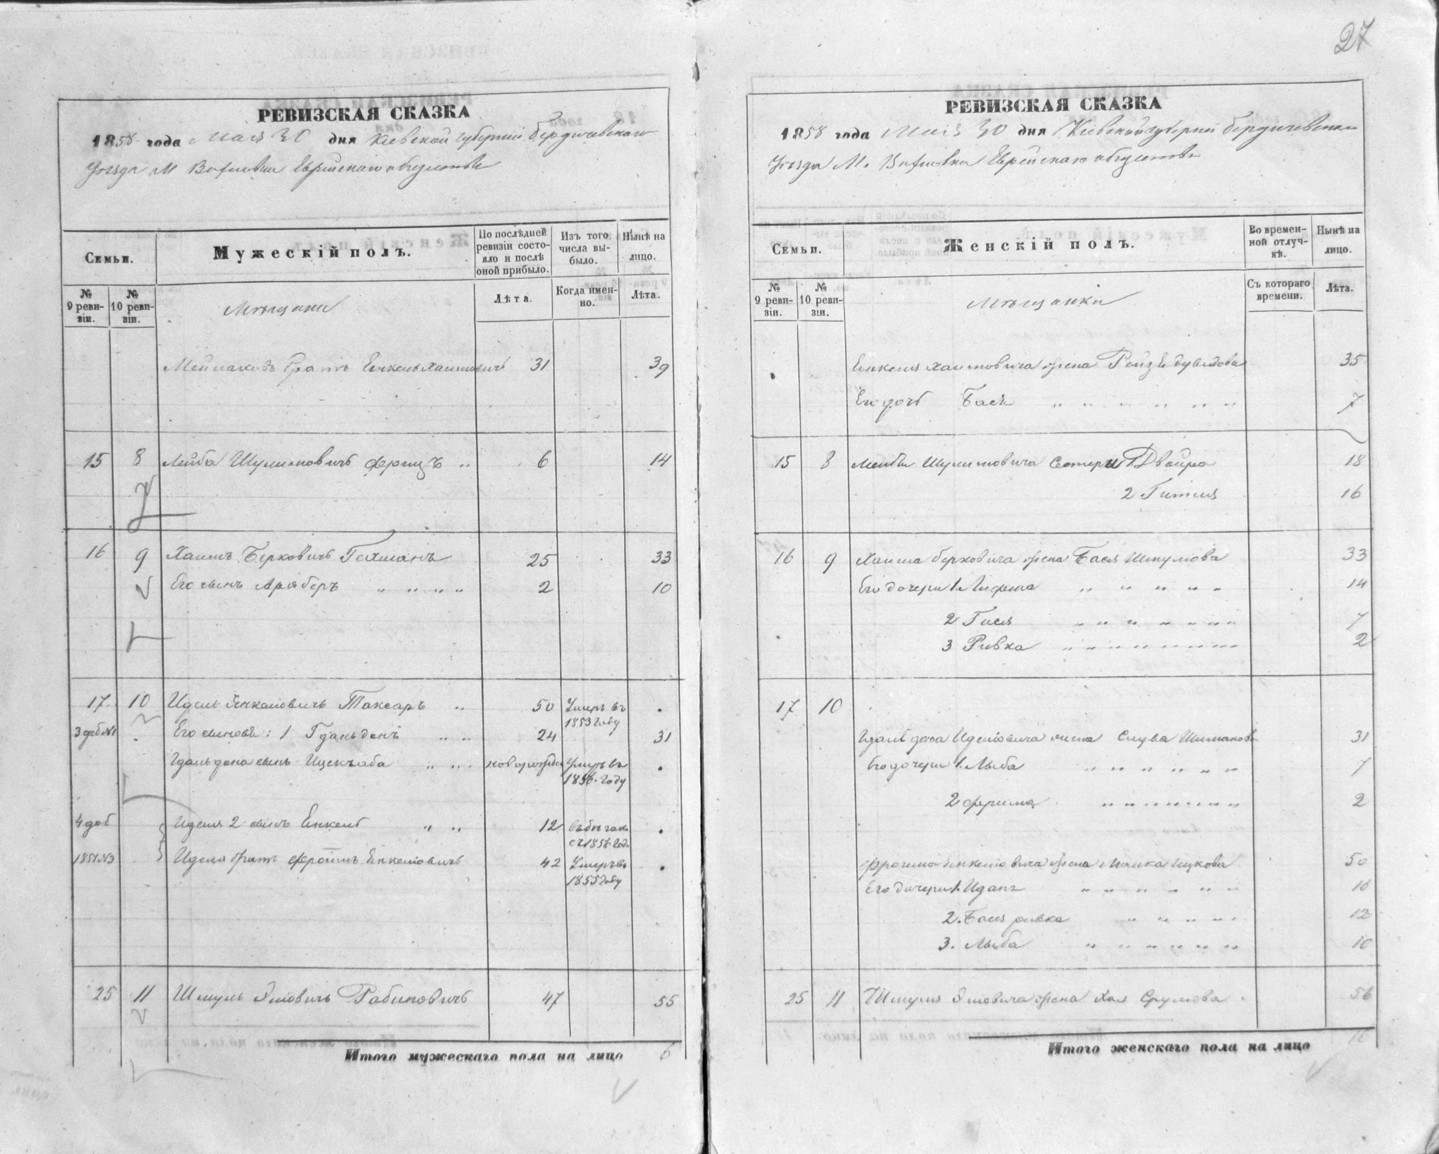 27
РЕВИЗСКАЯ СКАЗКА
1858 года Мая 30 дня Кіевской губерніи Бердичевскаго
Уезда М Вахновки Еврейскаго общества
Семьи.
Мужескій полъ.
По послѣдней ревизіи состояло и послѣ оной прибыло.
Изъ того числа выбыло.
Нынѣ на лицо.
№ 9 ревизіи.
№ 10 ревизіи.
Мѣщане
Лѣта.
Когда именно.
Лѣта.
братъ Енкель Хаимовичъ 31 39
15 8 Лейба Шулимовичъ 6 14
16 9 Хаимъ Берковичъ Гехманъ 25 33
Его сынъ Арія беръ " " " " 2 10
17 10 Идель Янкелевичъ 50 Умеръ въ 1853 году
Его сыновья: 1 24 31
сынъ новорожден Умеръ въ 1856 году
4 доб Иделя 2 сынъ Енкель " " 12 1856
Иделя братъ Енкелевичъ 42 Умеръ въ 1855 году
25 11 Шмуль Рабиновичъ 47 55
Итого мужескаго пола на лицо 6
РЕВИЗСКАЯ СКАЗКА
1858 года Мая 30 дня Кіевской губерніи Бердичевскаго
Уезда М. Вахновки Еврейскаго общества
Семьи.
Женскій полъ.
Во временной отлучкѣ.
Нынѣ на лицо.
№ 9 ревизіи.
№ 10 ревизіи.
Мѣщанки
Съ котораго времени.
Лѣта.
Енкеля Хаимовича жена Рейзя Дувидова 35
Его дочь Бася " " " " " " 7
15 8 Лейбы Шулимовича сестры 1 Двойра 18
2 Гителя 16
16 9 Хаима Берковича жена Бася Шмулева 33
Его дочери 1. " " " " " 14
2 Гися " " " " " " " 7
3 Ривка " " " " " " " " 2
17 10
Иделевича жена 31
Его дочери 1. Лыба " " " " " " 7
2 Фрима " " " " " " " 2
Енкелевича жена Ицкова 50
Его дочери 1. " " " " " " 16
2. Бася ривка " " " " " 12
3. Лыба " " " " " " " 10
25 11 Шмуля жена Хая Срулова 56
Итого женскаго пола на лицо 16